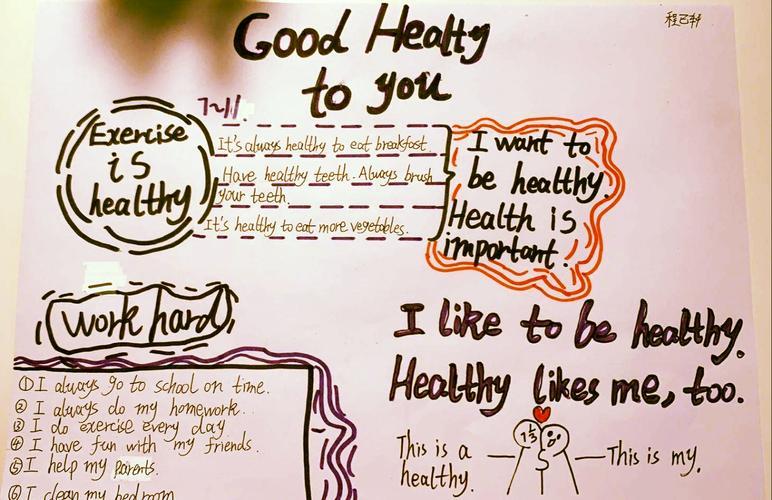 Good Healty
to you
程己轩
7~11.
Exercise
is
healthy
It's always healthy to eat breakfast.
Have healthy teeth. Always brush
your teeth.
It's healthy to eat more vegetables.
I want to
be healthy.
Health is
important.
Work hard
①I always go to school on time.
② I always do my homework.
③ I do exercise every day
④ I have fun with my friends.
⑤I help my parents.
⑥I clean my bedroom
I like to be healthy.
Healthy likes me, too.
This is a
healthy.
This is my.